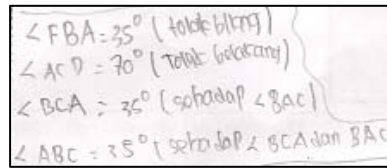 ∠FBA = 35° (tolak blkng)
∠ACD = 70° (tolak belakang)
∠BCA = 35° (sehadap ∠BAC)
∠ABC = 35° (sehadap ∠BCA dan BAC